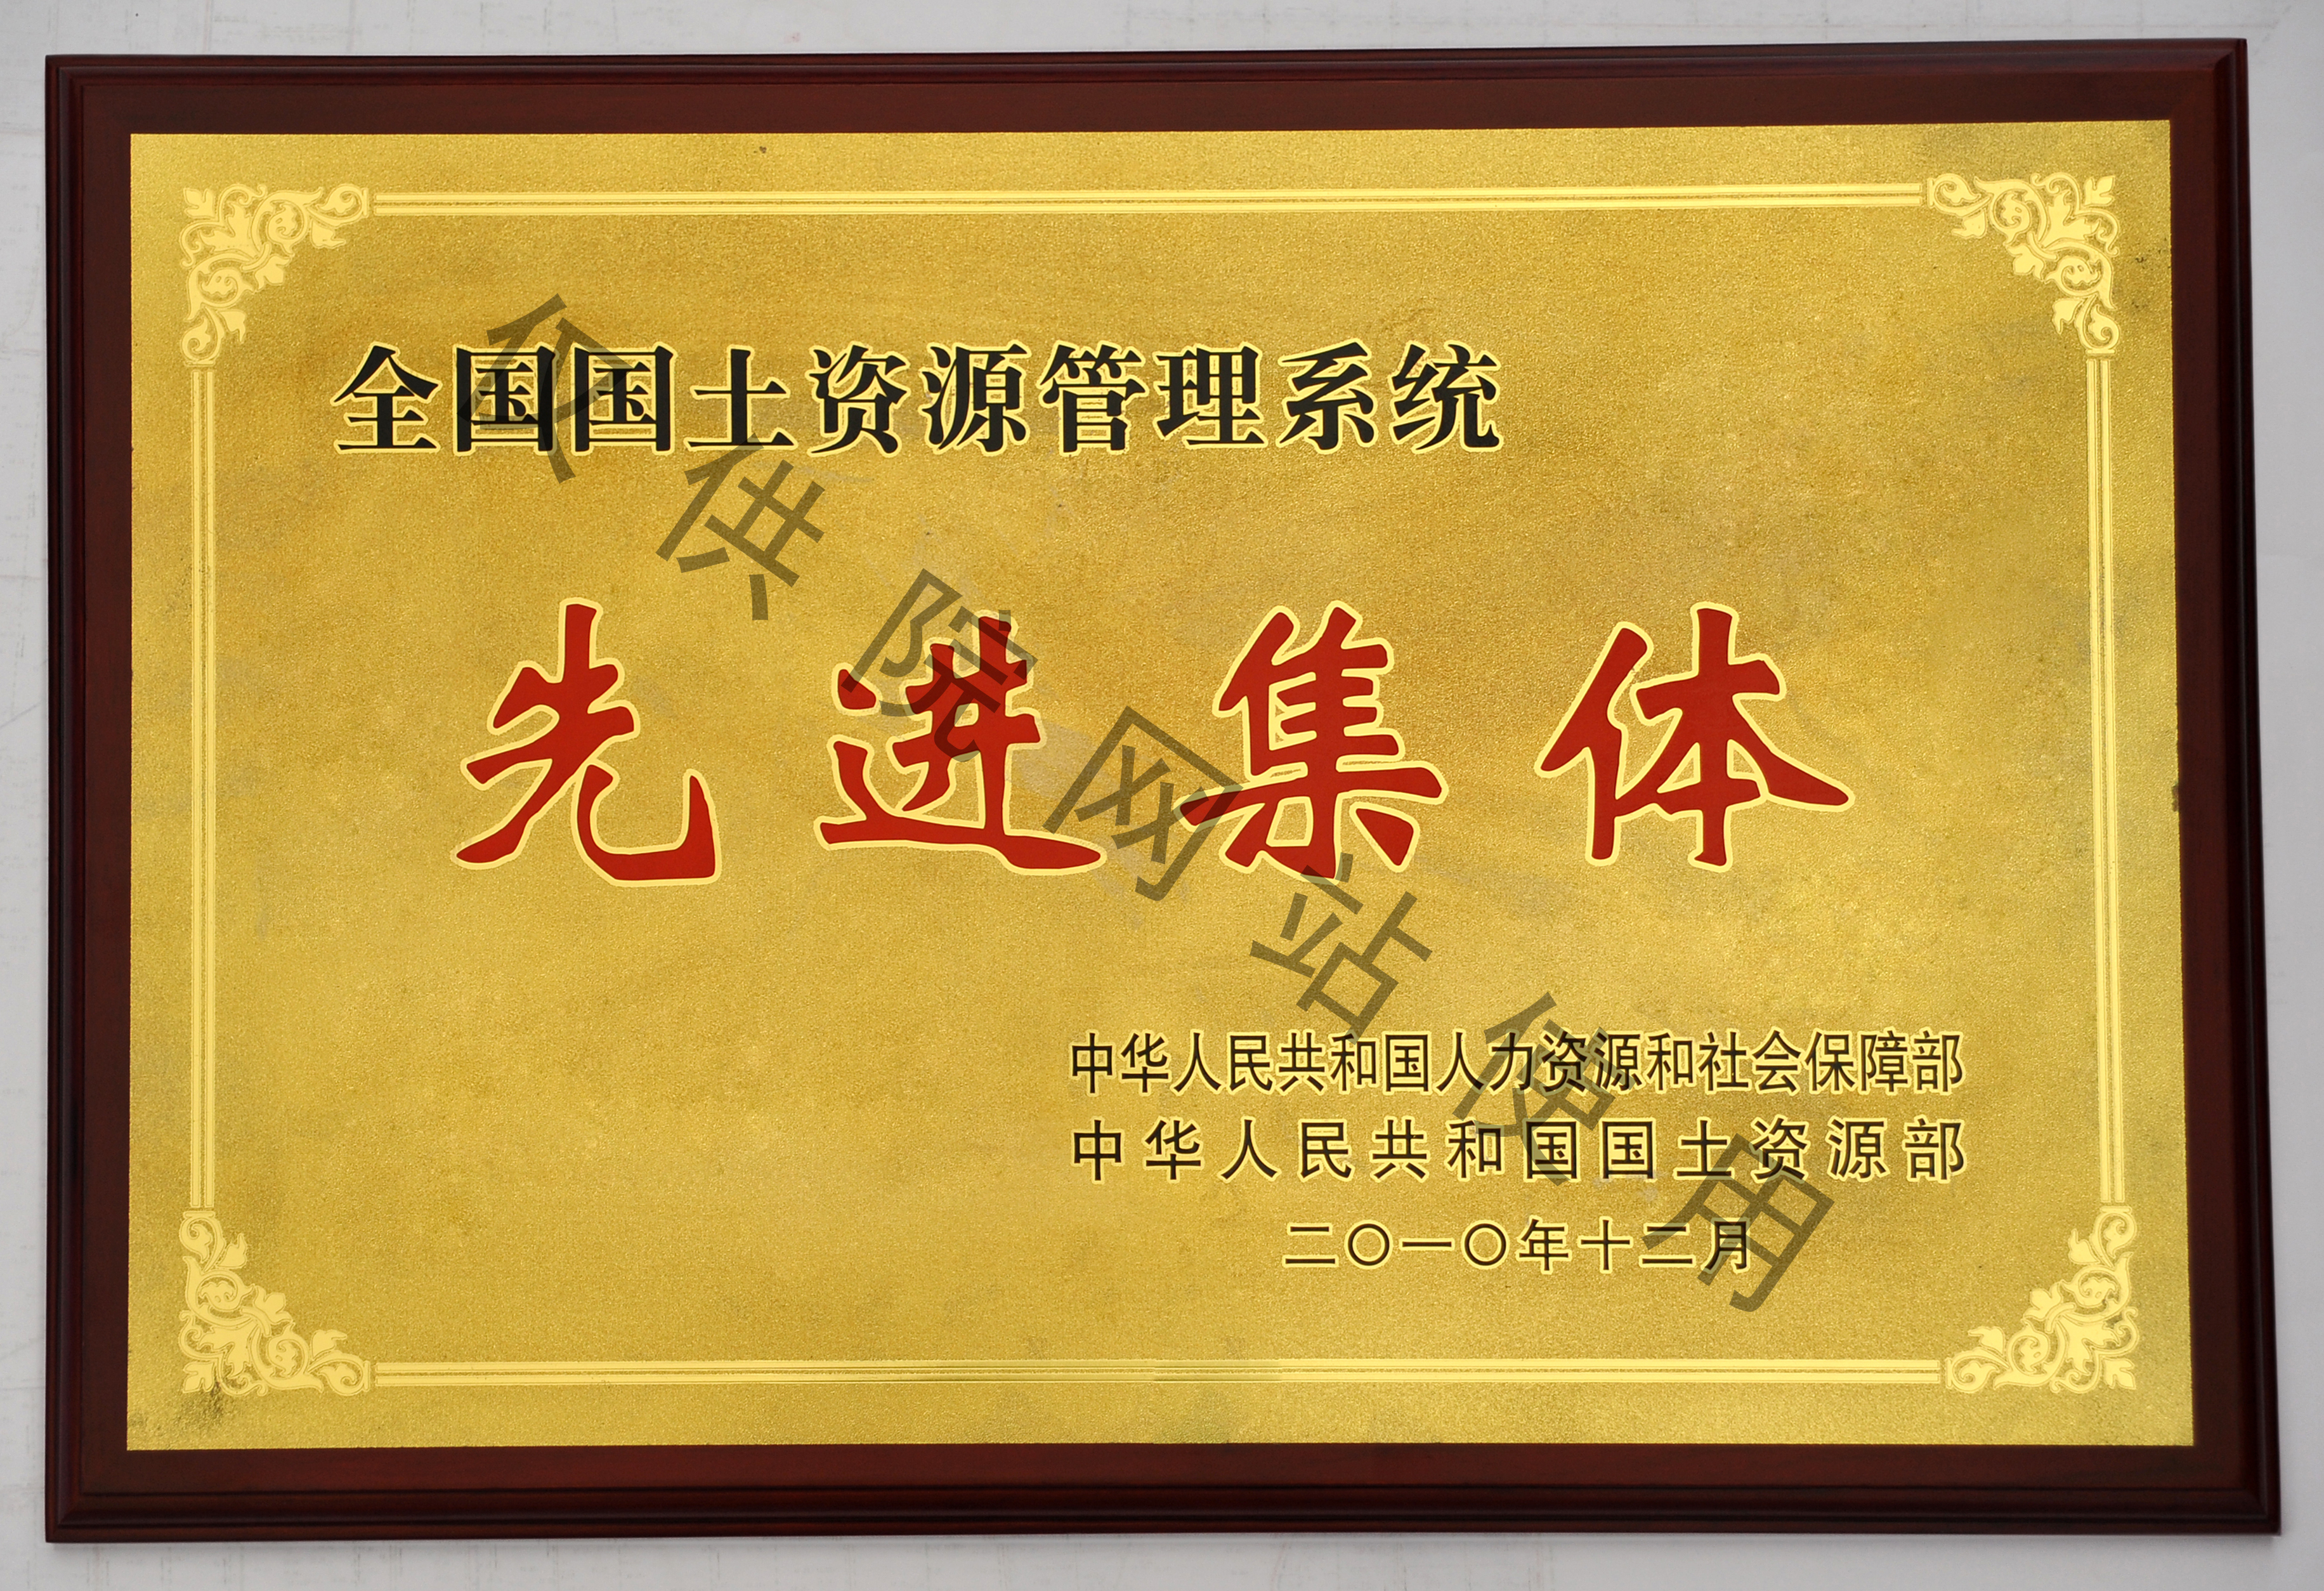 全国国土资源管理系统
先进集体
中华人民共和国人力资源和社会保障部
中华人民共和国国土资源部
二〇一〇年十二月
仅供院网站使用